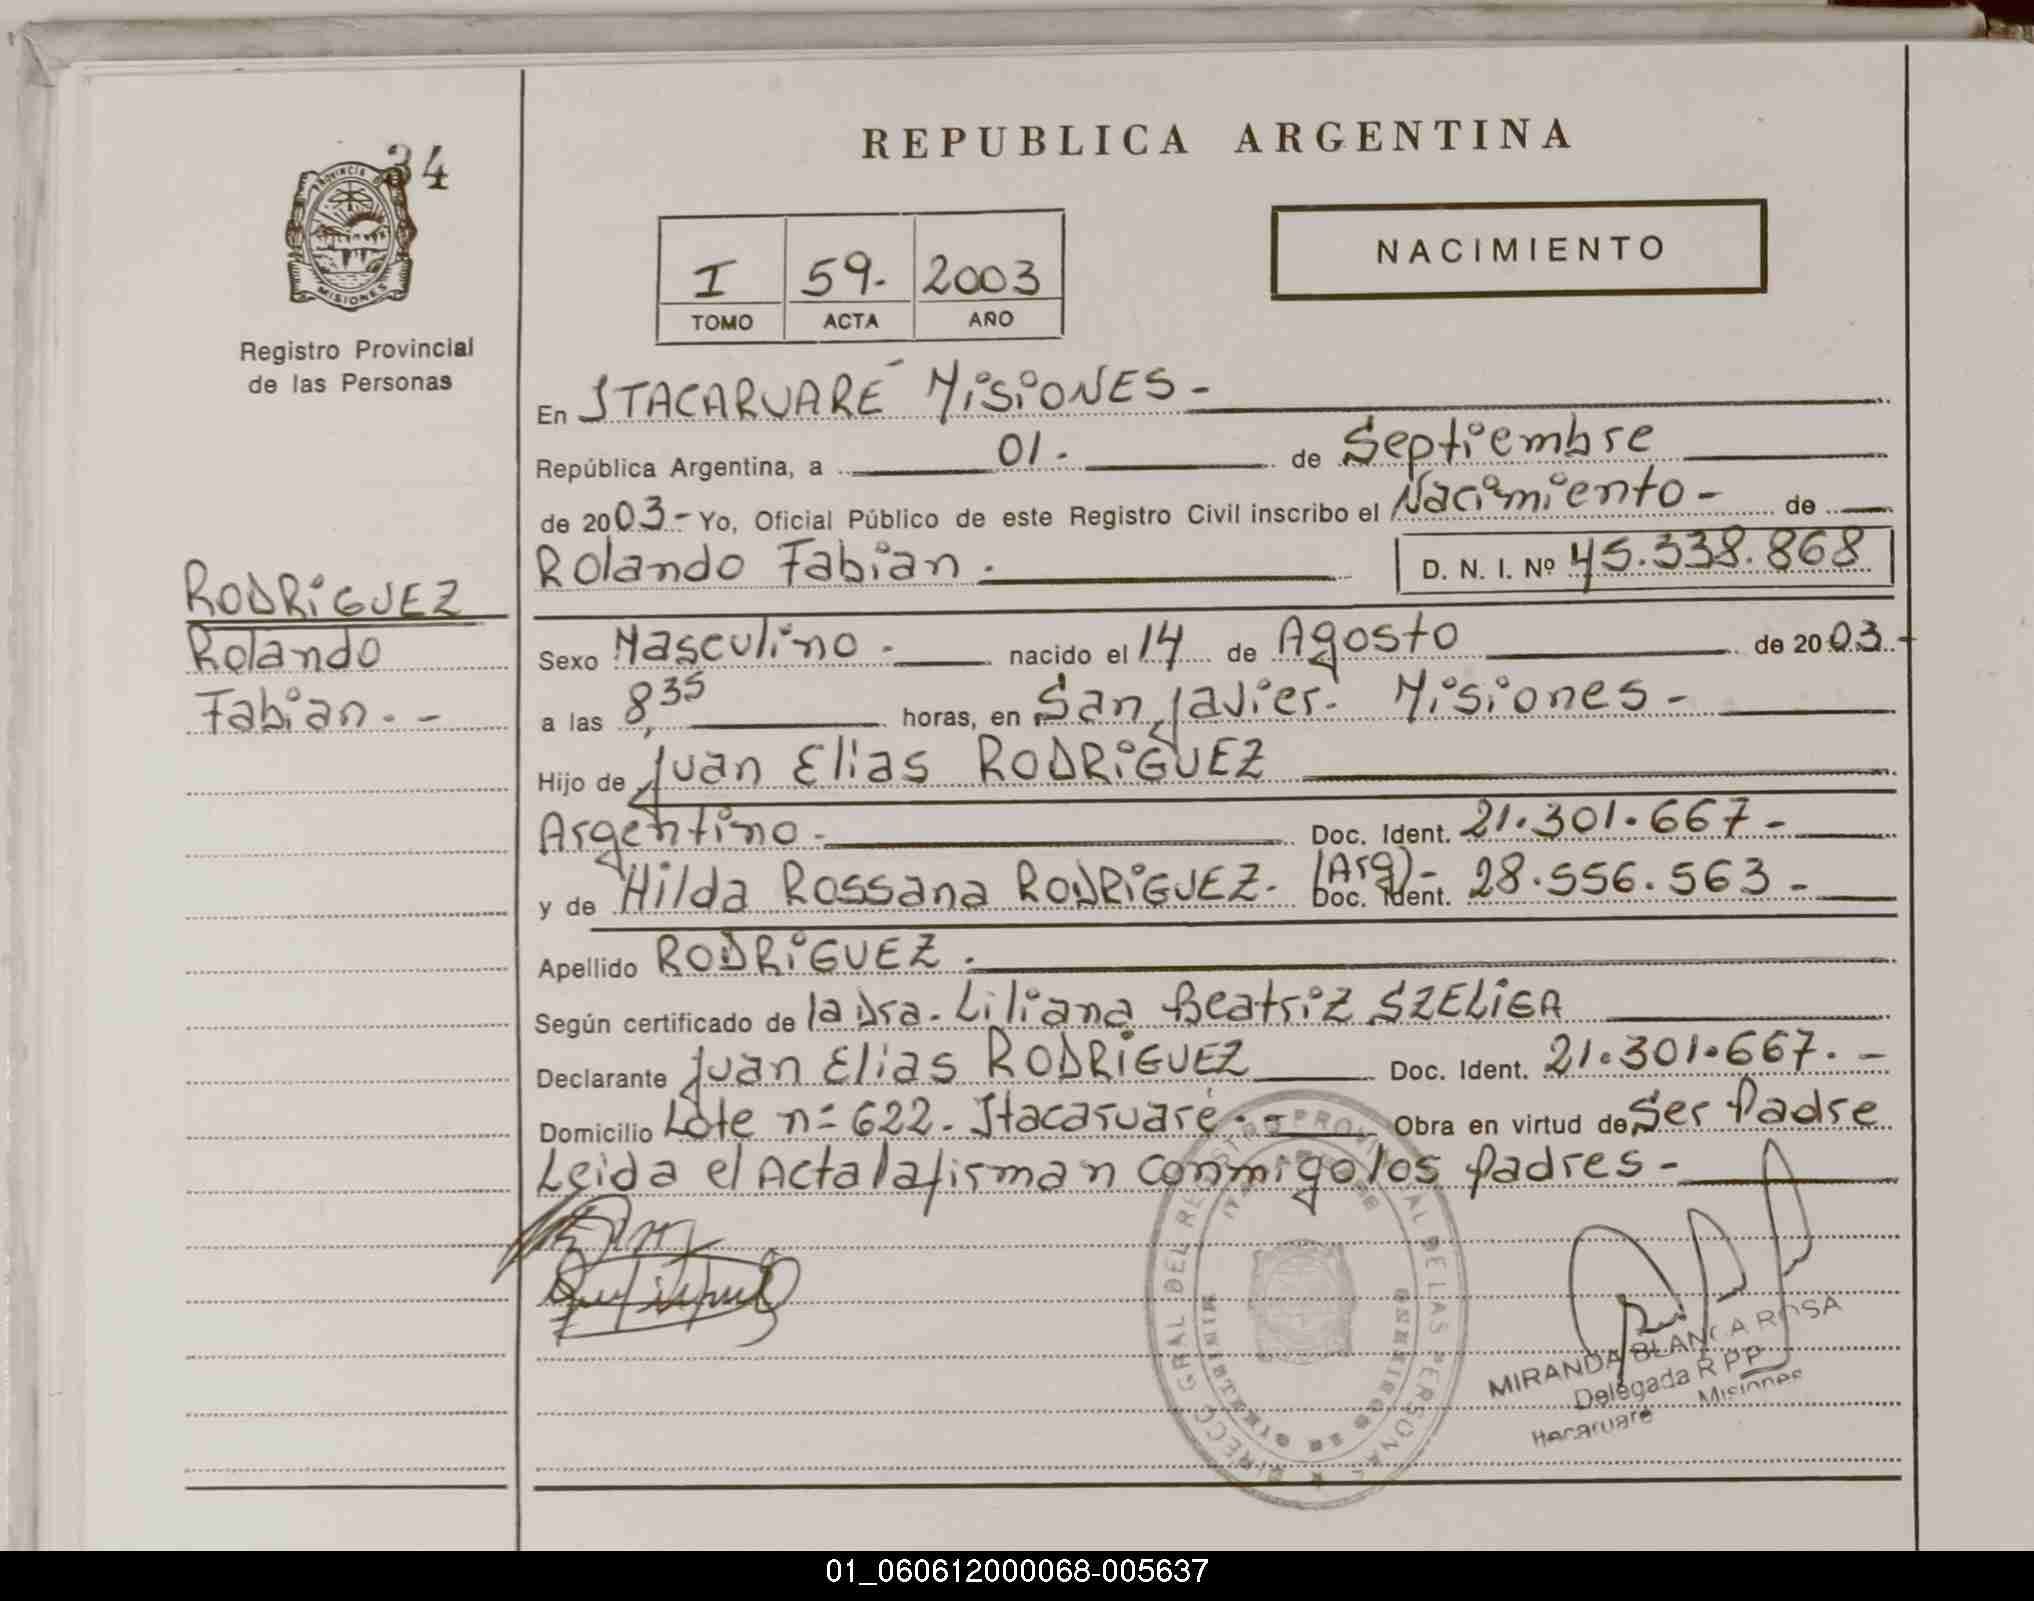 34
PROVINCIA DE
MISIONES
Registro Provincial
de las Personas
REPUBLICA ARGENTINA
I 59.- 2003
TOMO ACTA AÑO
NACIMIENTO
En ITACARUARÉ MISIONES -
República Argentina, a 01.- de Septiembre
de 2003- Yo, Oficial Público de este Registro Civil inscribo el Nacimiento - de
Rolando Fabian . D. N. I. Nº 45.338.868
RODRIGUEZ
Rolando
Fabian. -
Sexo Masculino - nacido el 14 de Agosto de 2003.-
a las 8,35 horas, en San Javier. Misiones -
Hijo de Juan Elias RODRIGUEZ
Argentino - Doc. Ident. 21.301.667-
y de Hilda Rossana RODRIGUEZ- (Arg)- Doc. Ident. 28.556.563-
Apellido RODRIGUEZ .
Según certificado de la Dra. Liliana Beatriz SZELIGA
Declarante Juan Elias RODRIGUEZ Doc. Ident. 21.301.667.-
Domicilio Lote n= 622. Itacaruaré.- Obra en virtud de Ser Padre
Leida el Acta la firman conmigo los padres -
DIRECC GRAL DEL REGISTRO PROVINCIAL DE LAS PERSONAS
MIRANDA BLANCA ROSA
Delegada R P P
Itacaruare Misiones
01_060612000068-005637